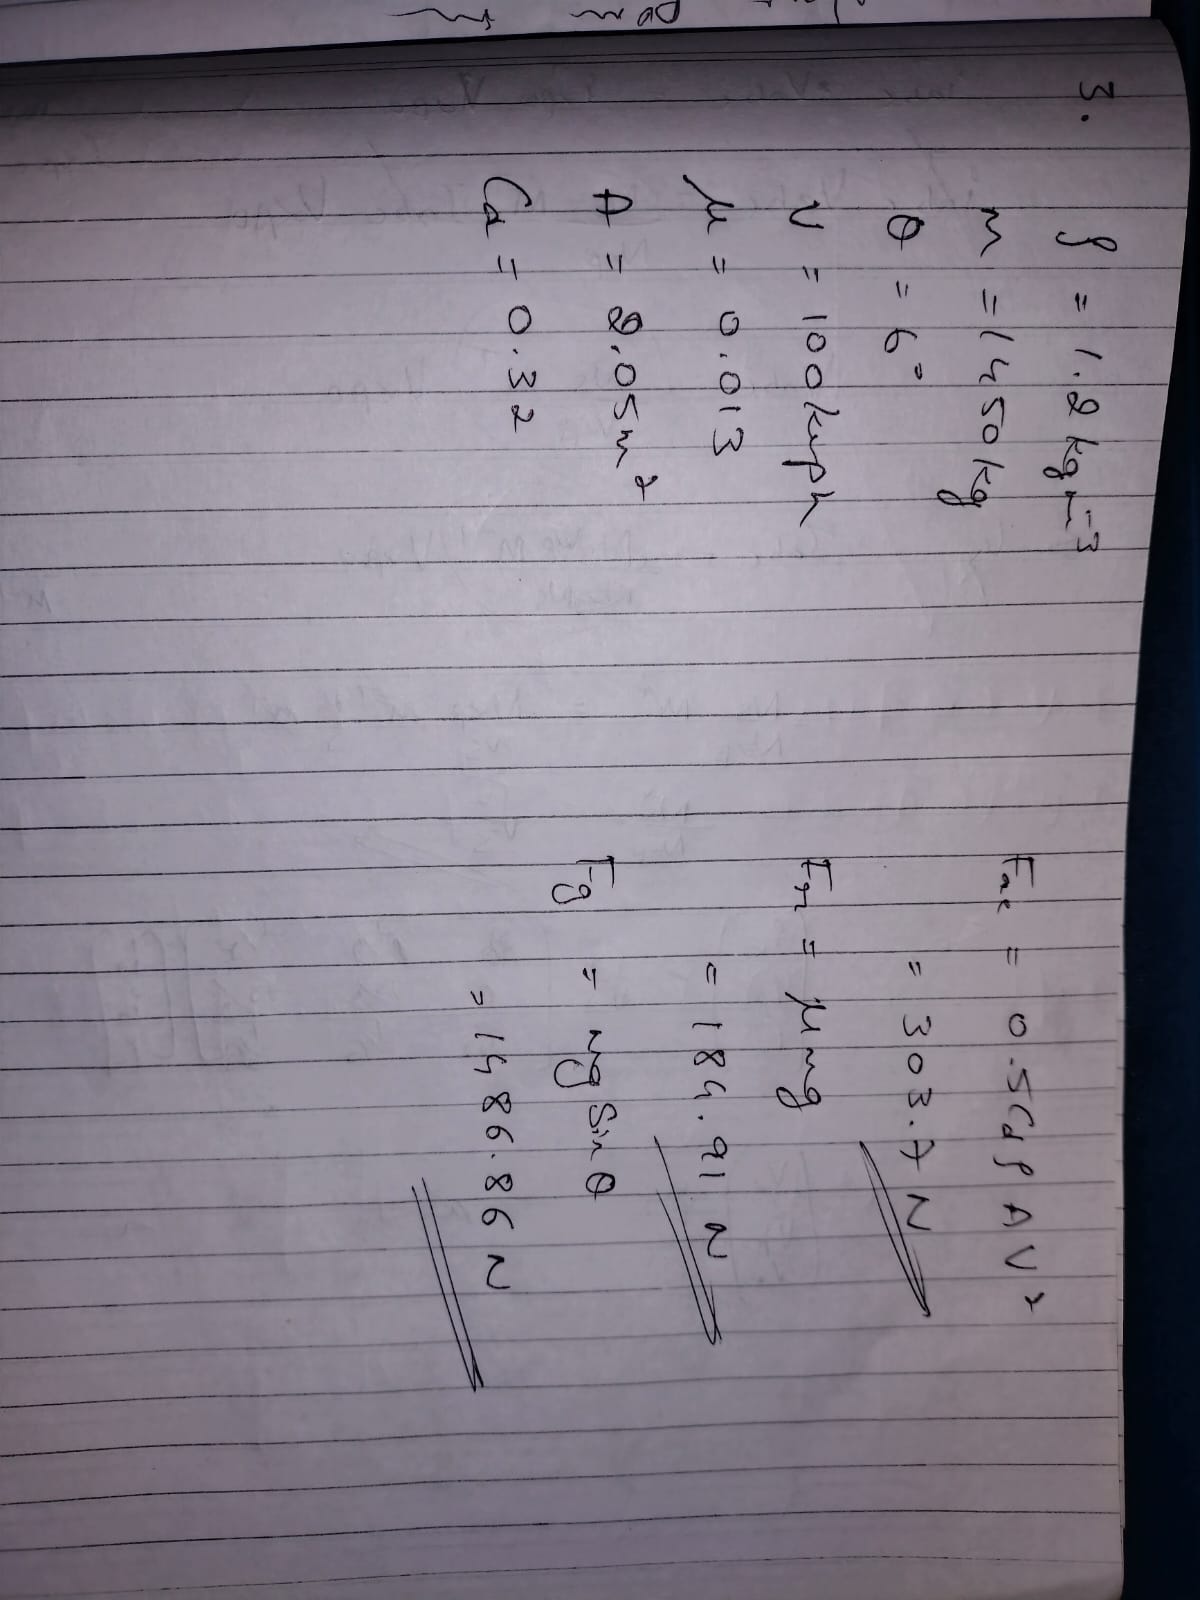 3.
ρ = 1.2 kgm⁻³
m = 1450 kg
θ = 6°
V = 100 kmph
μ = 0.013
A = 2.05 m²
Cd = 0.32
= 0.5 Cd ρ A V²
= 303.7 N
Fr = μmg
= 184.91 N
Fg = mg sin θ
= 1486.86 N